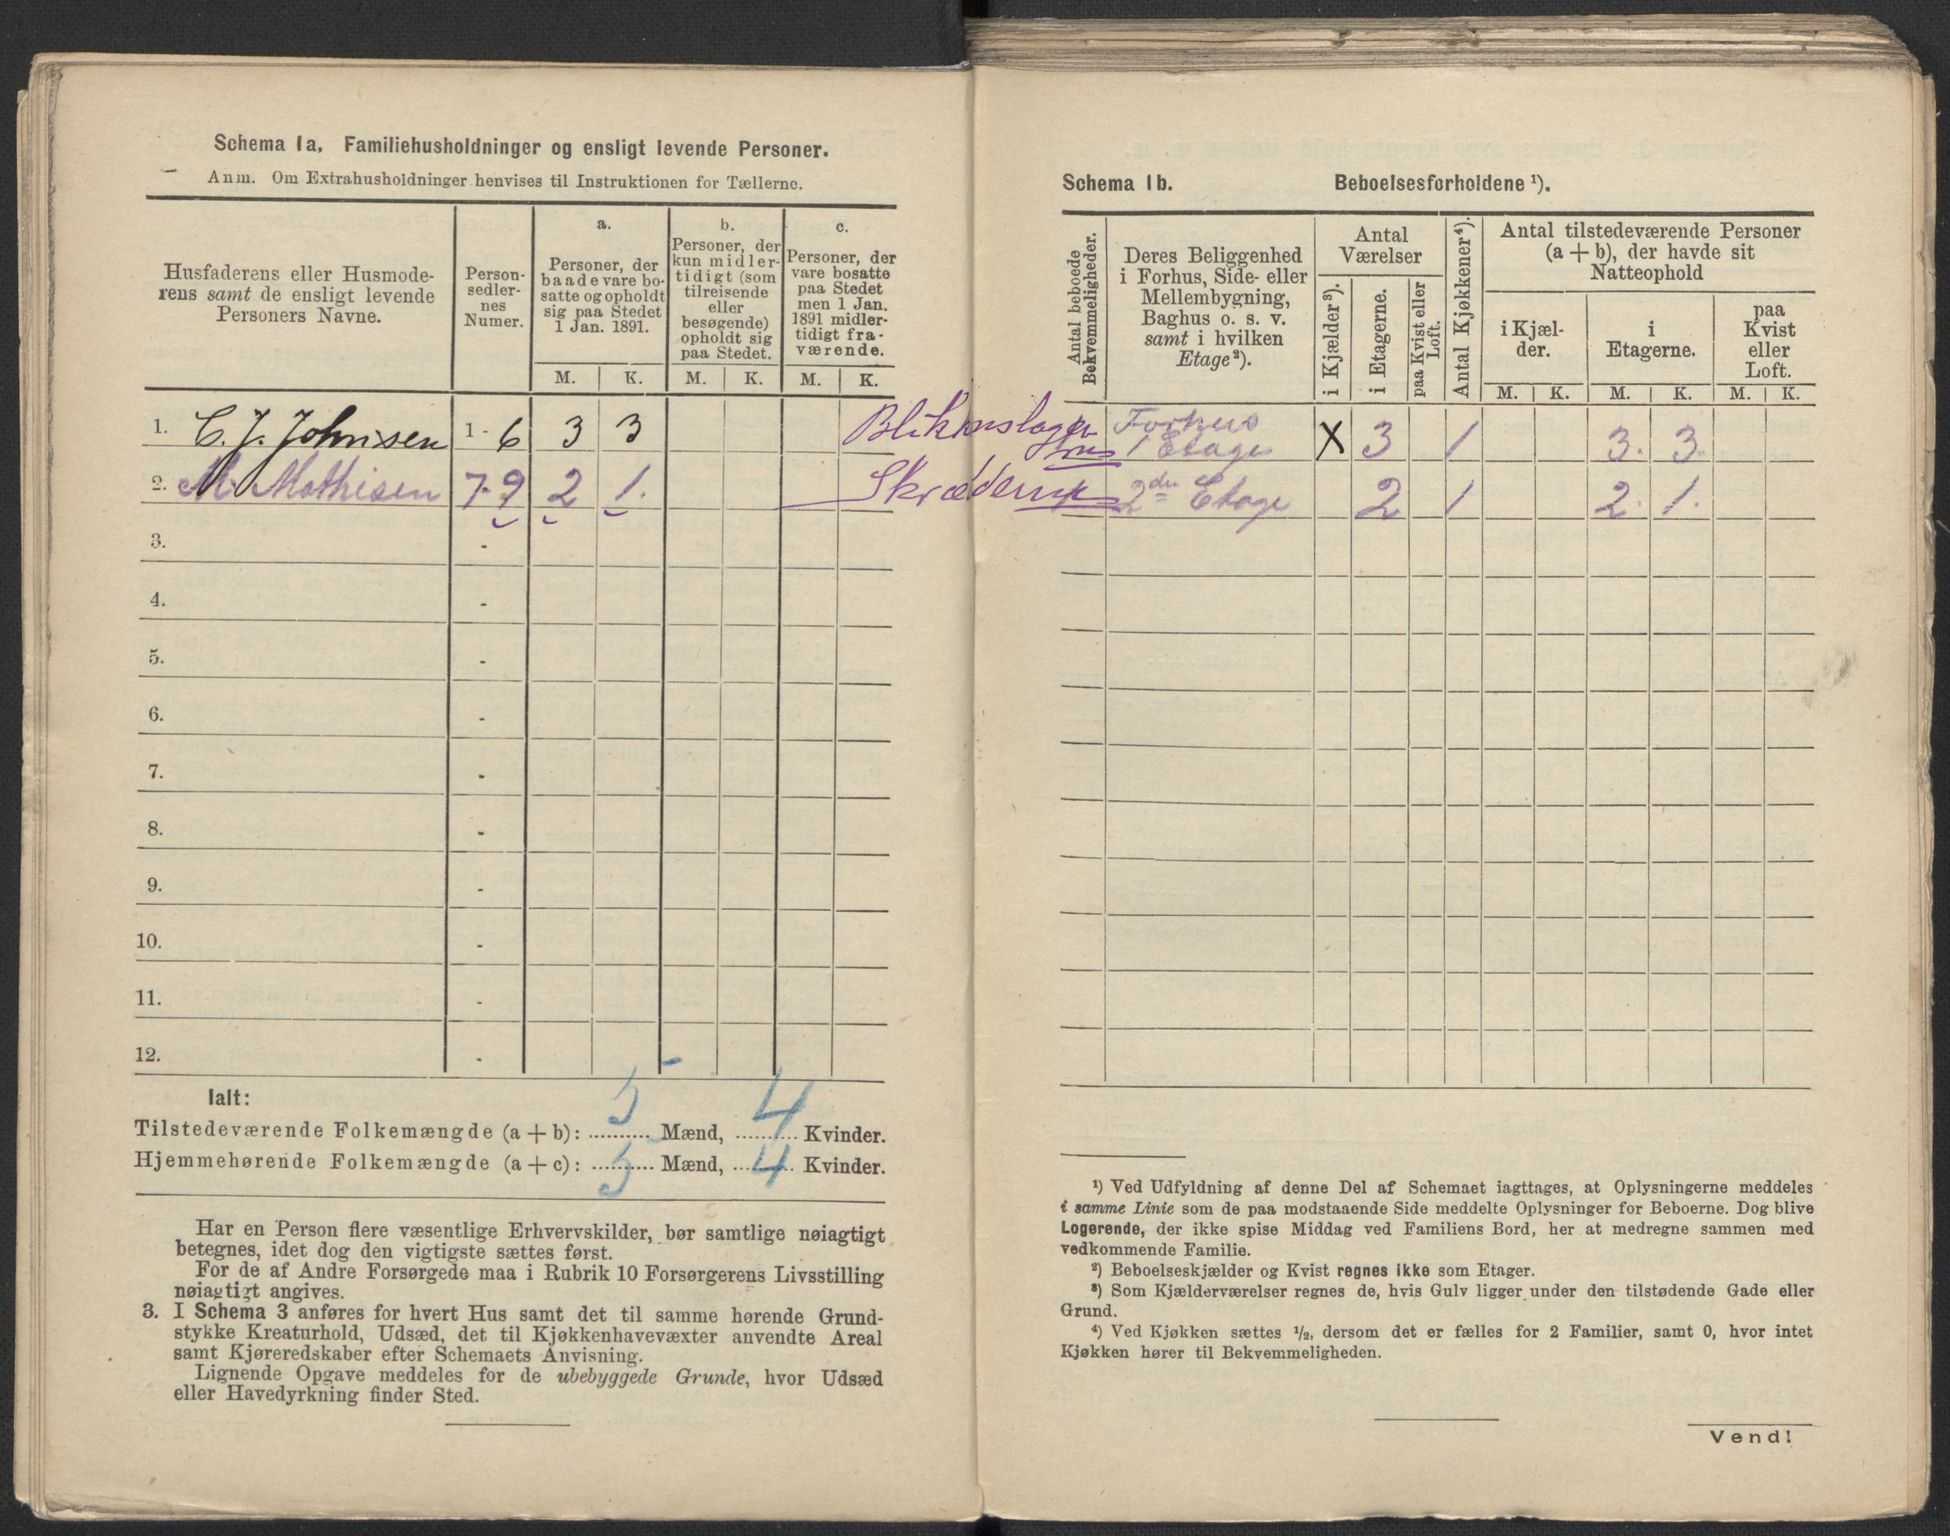 Schema 1a. Familiehusholdninger og ensligt levende Personer.
Anm. Om Extrahusholdninger henvises til Instruktionen for Tællerne.
Husfaderens eller Husmode-
rens samt de ensligt levende
Personers Navne.
Person-
sedler-
nes
Numer.
a.
Personer, der
baade vare bo-
satte og opholdt
sig paa Stedet
1 Jan. 1891.
b.
Personer, der
kun midler-
tidigt (som
tilreisende
eller
besøgende)
opholdt sig
paa Stedet.
c.
Personer, der
vare bosatte
paa Stedet
men 1 Jan.
1891 midler-
tidigt fra-
værende.
M. K. M. K. M. K.
1. C. J. Johnsen 1 - 6 3 3 Blikenslager
2. M. Mathisen 7-9 2 1.
3. -
4. -
5. -
6. -
7. -
8. -
9. -
10. -
11. -
12. -
Ialt:
Tilstedeværende Folkemængde (a + b): 5 Mænd, 4 Kvinder.
Hjemmehørende Folkemængde (a + c): 5 Mænd, 4 Kvinder.
Har en Person flere væsentlige Erhvervskilder, bør samtlige nøiagtigt
betegnes, idet dog den vigtigste sættes først.
For de af Andre Forsørgede maa i Rubrik 10 Forsørgerens Livsstilling
nøiagtigt angives.
3. I Schema 3 anføres for hvert Hus samt det til samme hørende Grund-
stykke Kreaturhold, Udsæd, det til Kjøkkenhavevæxter anvendte Areal
samt Kjøreredskaber efter Schemaets Anvisning.
Lignende Opgave meddeles for de ubebyggede Grunde, hvor Udsæd
eller Havedyrkning finder Sted.
Schema 1b. Beboelsesforholdene ¹).
Antal beboede
Bekvemmeligheder.
Deres Beliggenhed
i Forhus, Side- eller
Mellembygning,
Baghus o. s. v.
samt i hvilken
Etage²).
Antal
Værelser
i Kjælder³).
i Etagerne.
paa Kvist eller
Loft.
Antal Kjøkkener⁴).
Antal tilstedeværende Personer
(a + b), der havde sit
Natteophold
i Kjæl-
der.
i
Etagerne.
paa
Kvist
eller
Loft.
M. K. M. K. M. K.
Forhus
1 Etage X 3 1 3. 3.
2den Etage 2 1 2. 1.
¹) Ved Udfyldning af denne Del af Schemaet iagttages, at Oplysningerne meddeles
i samme Linie som de paa modstaaende Side meddelte Oplysninger for Beboerne. Dog blive
Logerende, der ikke spise Middag ved Familiens Bord, her at medregne sammen med
vedkommende Familie.
²) Beboelseskjælder og Kvist regnes ikke som Etager.
³) Som Kjælderværelser regnes de, hvis Gulv ligger under den tilstødende Gade eller
Grund.
⁴) Ved Kjøkken sættes ½, dersom det er fælles for 2 Familier, samt 0, hvor intet
Kjøkken hører til Bekvemmeligheden.
Vend!